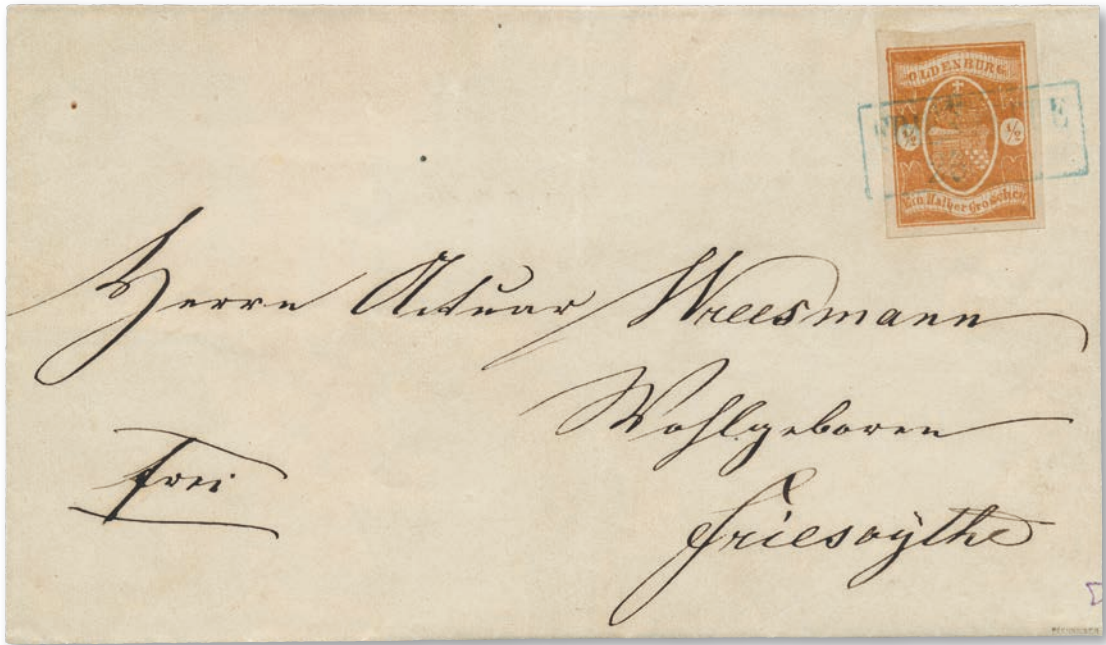 OLDENBURG
½ ½
Ein Halber Groschen
Herrn Actuar Wreesmann
Wohlgeboren
frei
Friesoÿthe